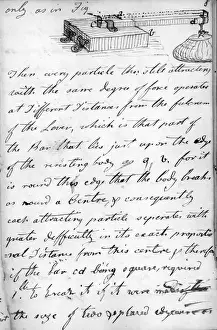 only as in Fig
8
Then every particle thus still attracting
with the same degree of force operates
at Different Distances from the fulcrum
of the Lever, which is that part of
the Bar that lies just upon the edge
of the resisting body as g, v, for it
is round this edge that the body breaks
as round a Centre, & consequently
each attracting particle seperates with
greater difficulty in its exact proportional
Distance from this centre, & therefore
if the bar cd being square, required
1. to break it if it were
the size of two placed edgeways